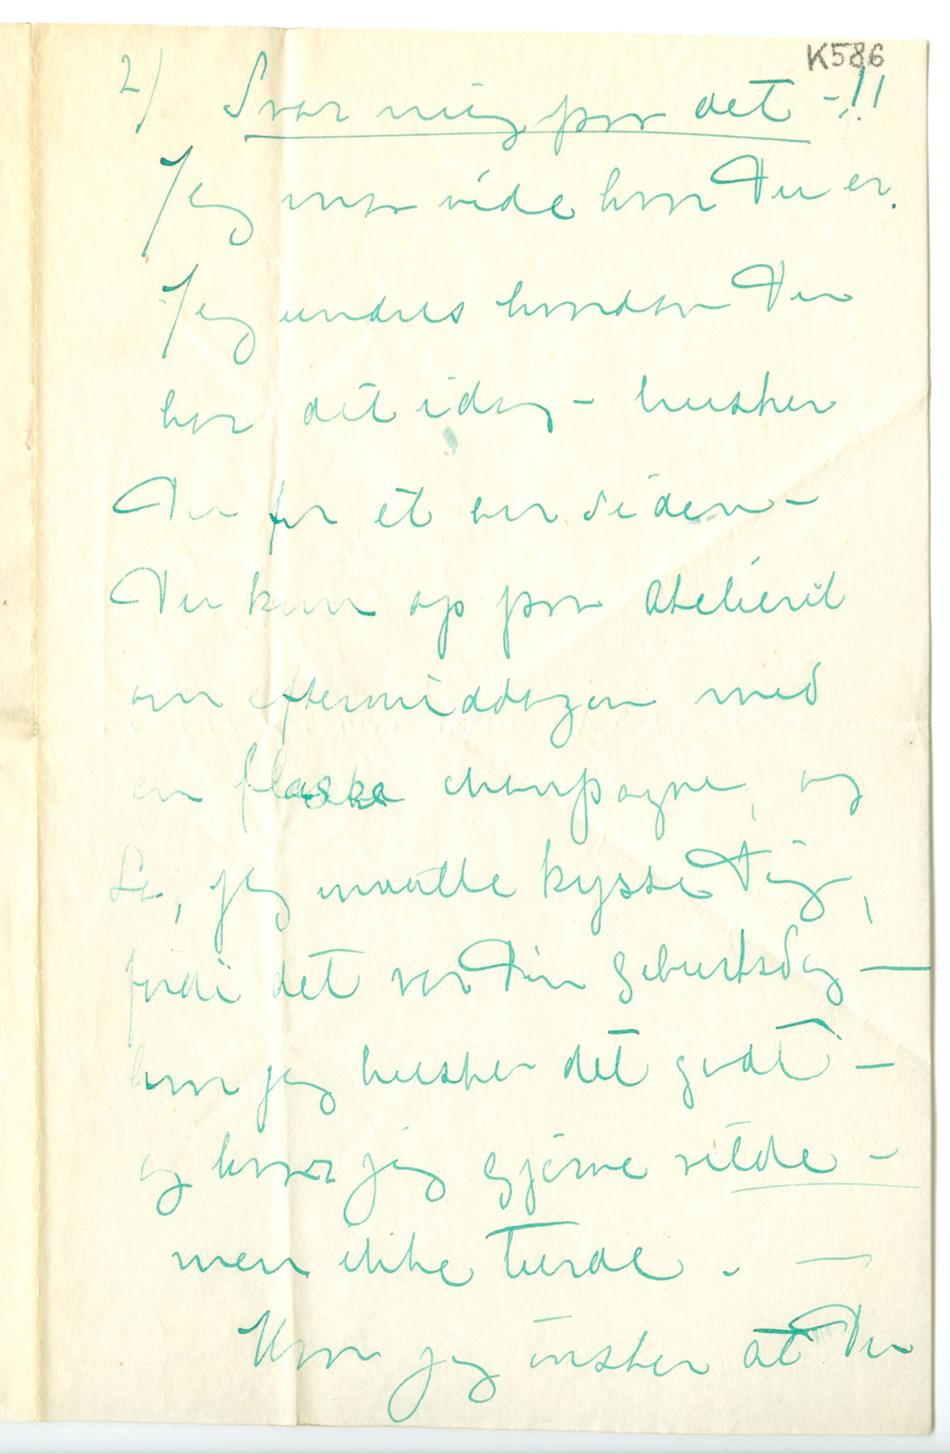 K586
2) Svar mig paa det -!!
Jeg maa vide hvor Du er.
Jeg undres hvordan Du
har det idag - husker
Du for et aar siden -
Du kam op paa Atelieret
om eftermiddagen med
en flaske champagne, og
Li, jeg maatte kysse Dig,
fordi det var Din Geburtsdag -
hvor jeg husker det godt -
og hvor jeg gjerne vilde -
men ikke turde. - -
Hvor jeg ønsker at Du